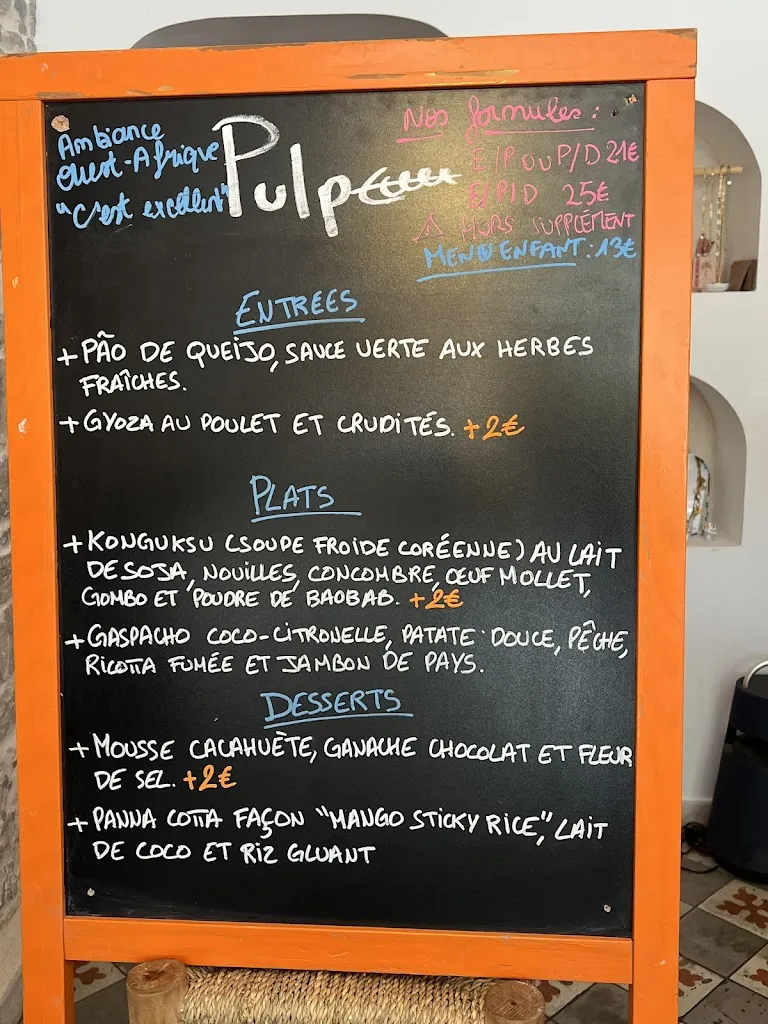 Ambiance
Ouest-Afrique
"C'est excellent"
Pulpe
Nos formules :
E/P ou P/D 21€
E/P/D 25€
⚠ HORS SUPPLÉMENT
MENU ENFANT : 13€
ENTREES
+ PÃO DE QUEIJO, SAUCE VERTE AUX HERBES
FRAÎCHES.
+ GYOZA AU POULET ET CRUDITÉS. +2€
PLATS
+ KONGUKSU (SOUPE FROIDE CORÉENNE) AU LAIT
DE SOJA, NOUILLES, CONCOMBRE, ŒUF MOLLET,
GOMBO ET POUDRE DE BAOBAB. +2€
+ GASPACHO COCO-CITRONELLE, PATATE DOUCE, PÊCHE,
RICOTTA FUMÉE ET JAMBON DE PAYS.
DESSERTS
+ MOUSSE CACAHUÈTE, GANACHE CHOCOLAT ET FLEUR
DE SEL. +2€
+ PANNA COTTA FAÇON "MANGO STICKY RICE", LAIT
DE COCO ET RIZ GLUANT